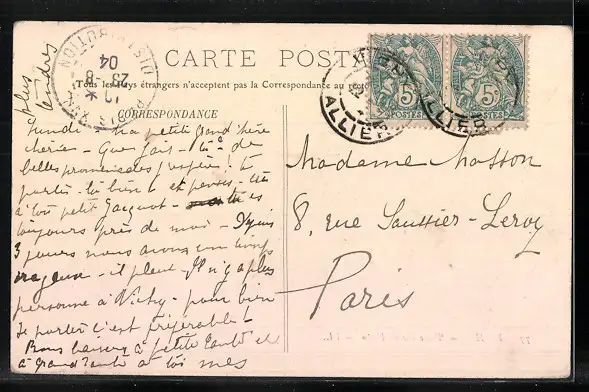 CARTE POSTALE
Tous les pays étrangers n'acceptent pas la Correspondance au
CORRESPONDANCE
plus
tendres
DISTRIBUTION
04
23 - 8
PARIS
ALLIER
ALLIER
5c
POSTES
5c
POSTES
Lundi - Ma petite
chérie - Que fais-tu de
belles promenades j'espère! te
portes-tu bien et penses-tu
à ton petit Jacquot -
toujours près de moi - Depuis
3 jours nous avons un temps
orageux - il pleut - Il n'y a plus
personne à Vichy - pour bien
se porter c'est préférable!
Bons baisers à petite tante et
à grand'tante à toi mes
Madame Masson
8, rue Saussier-Leroy
Paris